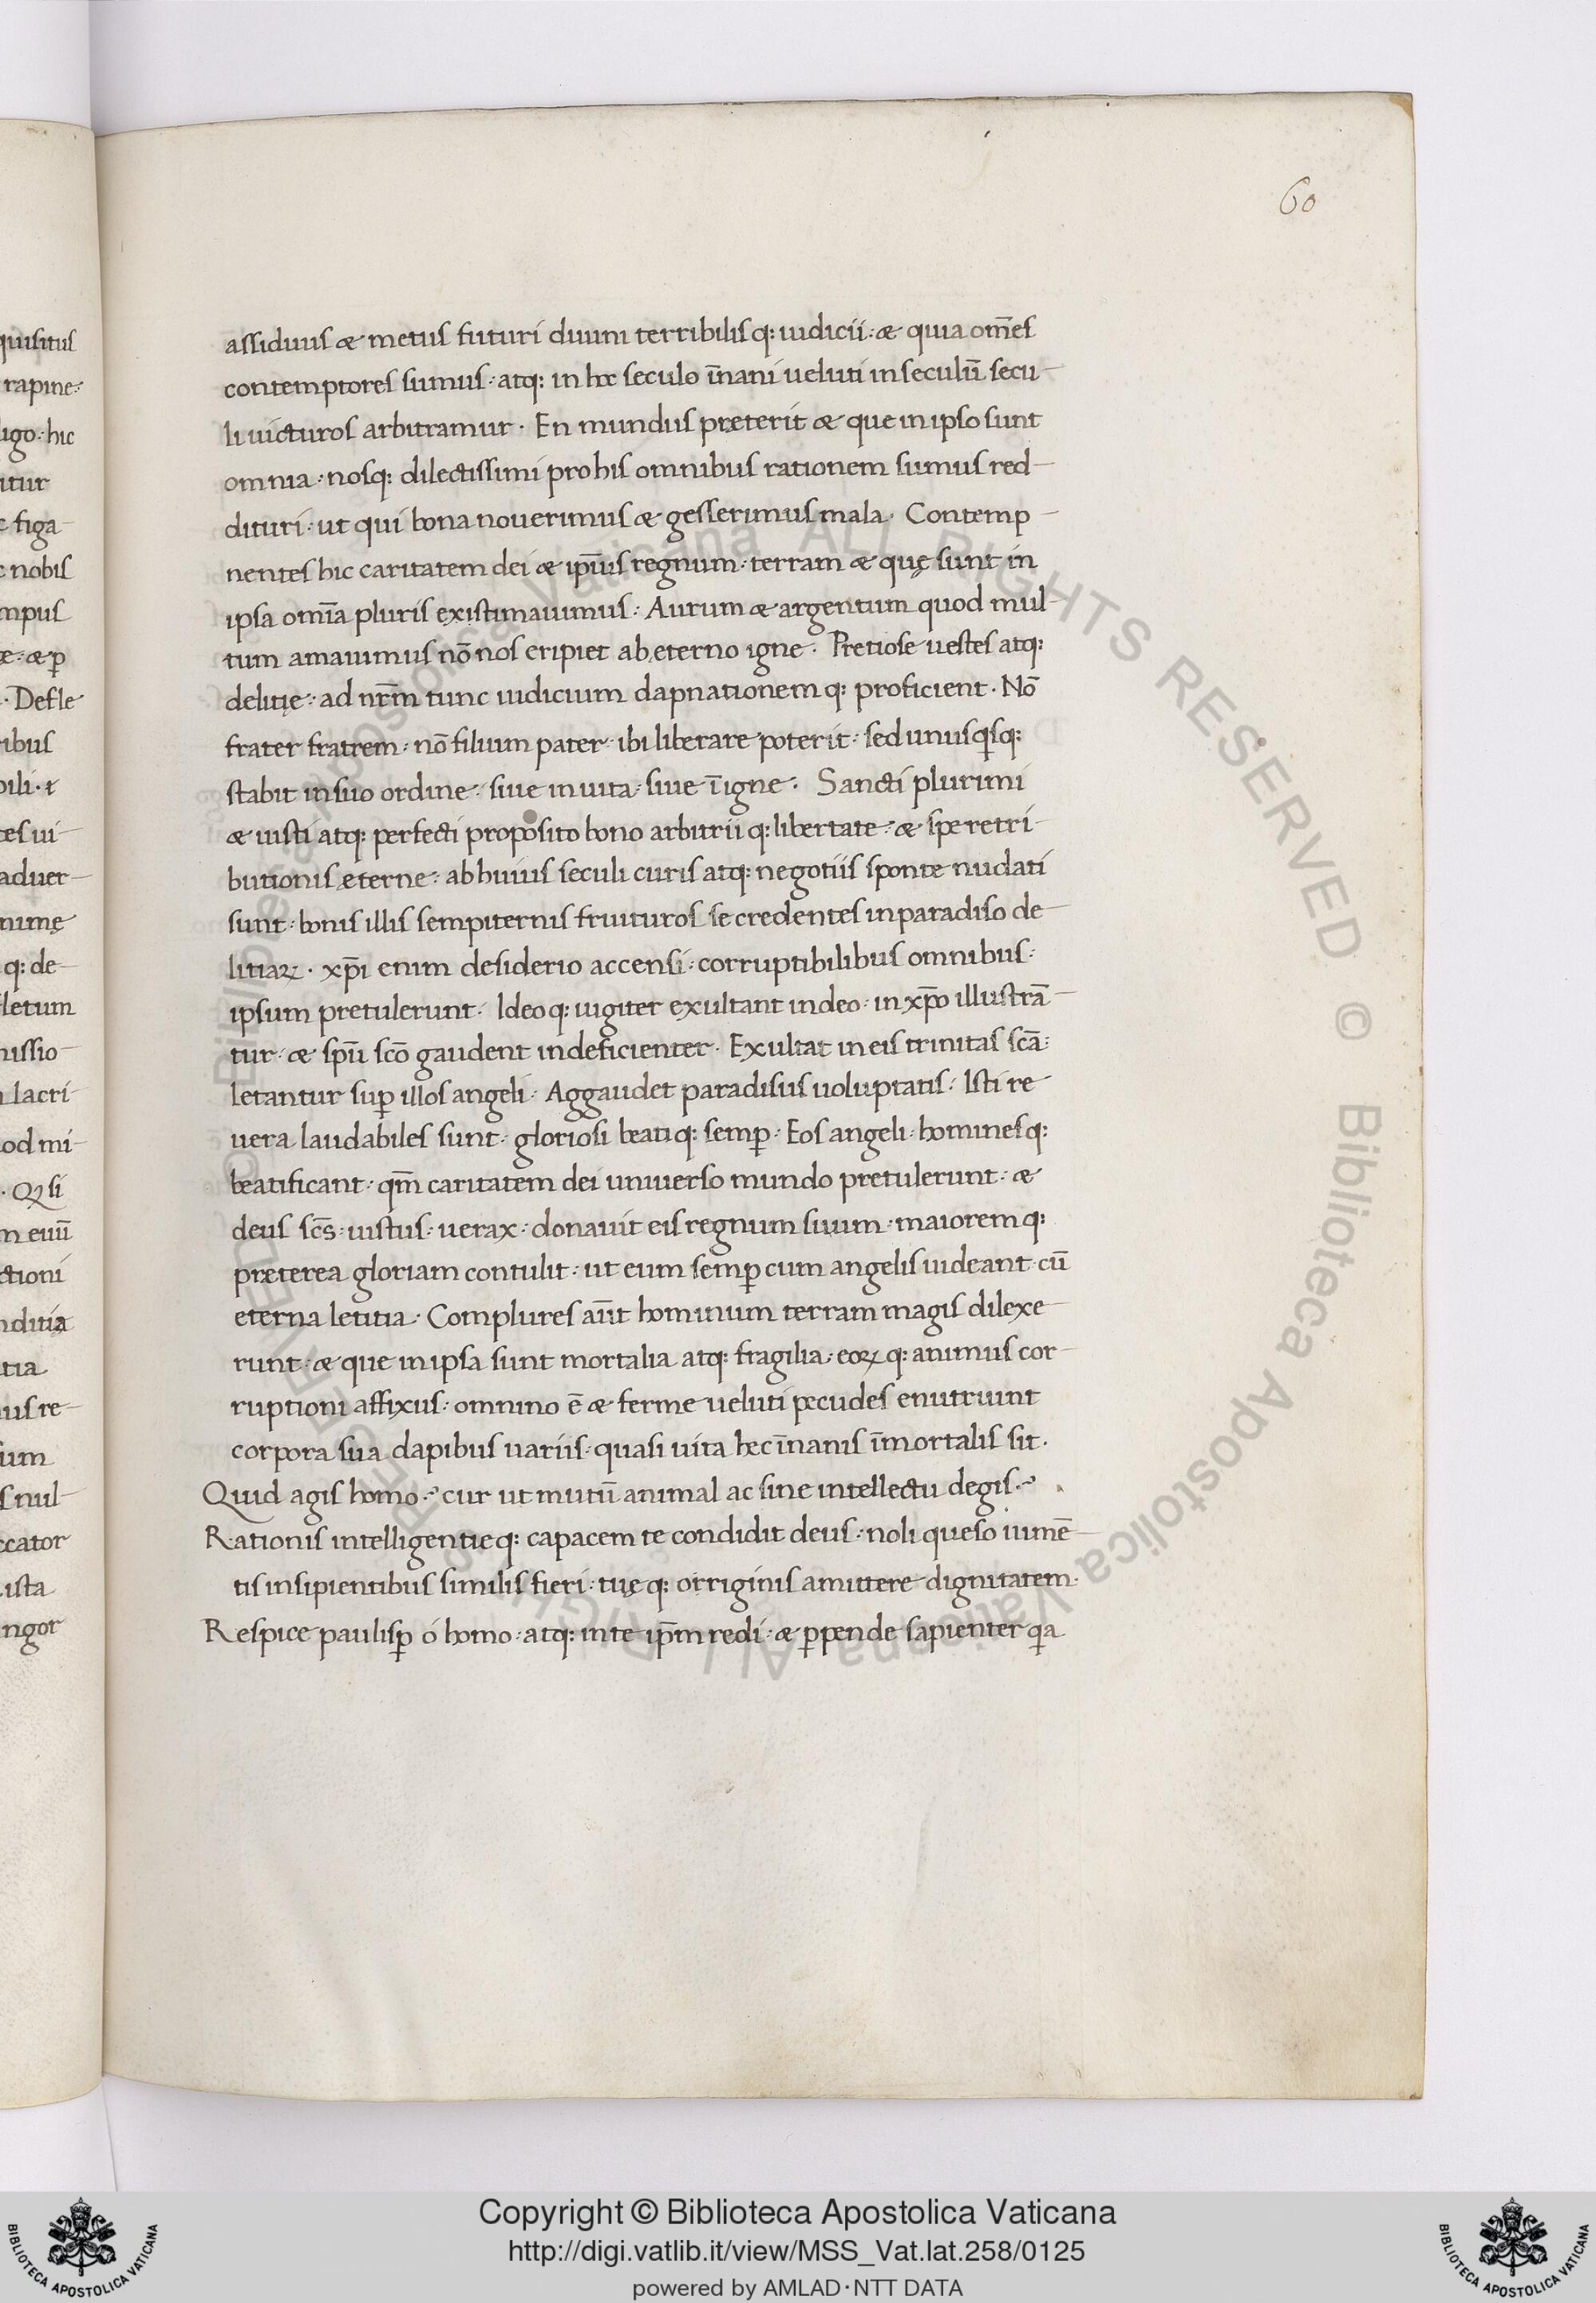 60
assiduus & metus futuri duum terribilisq: iudicii: & quia om̅es
contemptores sumus: atq: in hoc seculo i̅nani ueluti in seculu̅ secu-
li uicturos arbitramur. En mundus preterit & que in ipso sunt
omnia: nosq: dilectissimi pro his omnibus rationem sumus red-
dituri: ut qui bona nouerimus & gesserimus mala. Contemp-
nentes hic caritatem dei & ip̅ius regnum: terram & quę sunt in
ipsa om̅ia pluris existimauimus: Aurum & argentum quod mul-
tum amauimus no̅ nos eripiet ab ęterno igne. Pretiose uestes atq:
delitię: ad nr̅m tunc iudicium dapnationemq: proficient. No̅
frater fratrem: no̅ filium pater: ibi liberare poterit: sed unusqisq:
stabit in suo ordine: siue in uita: siue i̅ igne. Sancti plurimi
& iusti atq: perfecti proposito bono arbitriiq: libertate: & spe retri-
butionis ęterne: ab huius seculi curis atq: negotiis sponte nudati
sunt: bonis illis sempiternis fruituros se credentes in paradiso de-
litiaꝝ. xp̅i enim desiderio accensi: corruptibilibus omnibus:
ipsum pretulerunt. Ideoq: iugiter exultant in deo: in xp̅o illustra̅-
tur: & spu̅ sco̅ gaudent indeficienter. Exultat in eis trinitas sca̅:
letantur suꝑ illos angeli. Aggaudet paradisus uoluptatis: Isti re-
uera laudabiles sunt: gloriosi beatiq: semꝑ. Eos angeli: hominesq:
beatificant: qm̅ caritatem dei uniuerso mundo pretulerunt: &
deus sc̅s: iustus: uerax: donauit eis regnum suum: maioremq:
preterea gloriam contulit: ut eum semꝑ cum angelis uideant cu̅
eterna letitia. Complures au̅t hominum terram magis dilexe-
runt: & que in ipsa sunt mortalia atq: fragilia: eoꝝq: animus cor-
ruptioni affixus: omnino e̅ & ferme ueluti pecudes enutriunt
corpora sua dapibus uariis: quasi uita hec i̅nanis i̅mortalis sit.
Quid agis homo? cur ut mutu̅ animal ac sine intellectu degis?
Rationis intelligentieq: capacem te condidit deus: noli queso iume̅-
tis insipientibus similis fieri: tuęq: orriginis amittere dignitatem.
Respice paulisꝑ ó homo: atq: in te ip̅m redi: & ꝑpende sapienter qia
quisitus
rapine:
igo: hic
itur
figa-
nobis
mpus
& ꝑ
. Defle-
ribus
bili. &
tes ui-
aduer-
nimę
q: de-
fletum
missio-
lacri-
od mi-
. Qꝫ si
m euu̅
ctioni
nditia
tia
us re-
ium
s nul-
ccator
ista
ngor
Copyright © Biblioteca Apostolica Vaticana
http://digi.vatlib.it/view/MSS_Vat.lat.258/0125
powered by AMLAD·NTT DATA
BIBLIOTECA APOSTOLICA VATICANA
BIBLIOTECA APOSTOLICA VATICANA
© Biblioteca Apostolica Vaticana ALL RIGHTS RESERVED © Biblioteca Apostolica Vaticana ALL RIGHTS RESERVED